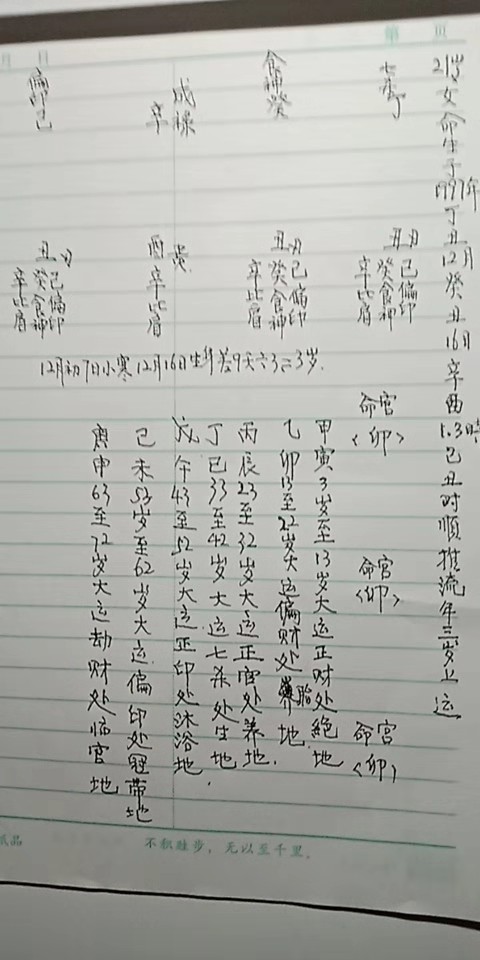 第 页
月 日
21岁女命生于1997年丁丑12月癸丑16日辛酉1.3时己丑时顺推流年三岁上运
七杀丁
食神癸
辛
偏印己
丑
己偏印
癸食神
辛比肩
丑
己偏印
癸食神
辛比肩
酉
辛比肩
丑
己偏印
癸食神
辛比肩
12月初7日小寒12月16日生
命宫
<卯>
命宫
<卯>
命宫
<卯>
甲寅3岁至13岁大运正财处绝地
乙卯13至22岁大运偏财处胎地.
丙辰23至32岁大运正官处养地.
丁巳33至42岁大运七杀处生地.
戊午43至52岁大运正印处沐浴地
己未53岁至62岁大运偏印处冠带地
庚申63至72岁大运劫财处临官地
纸品
不积跬步，无以至千里。